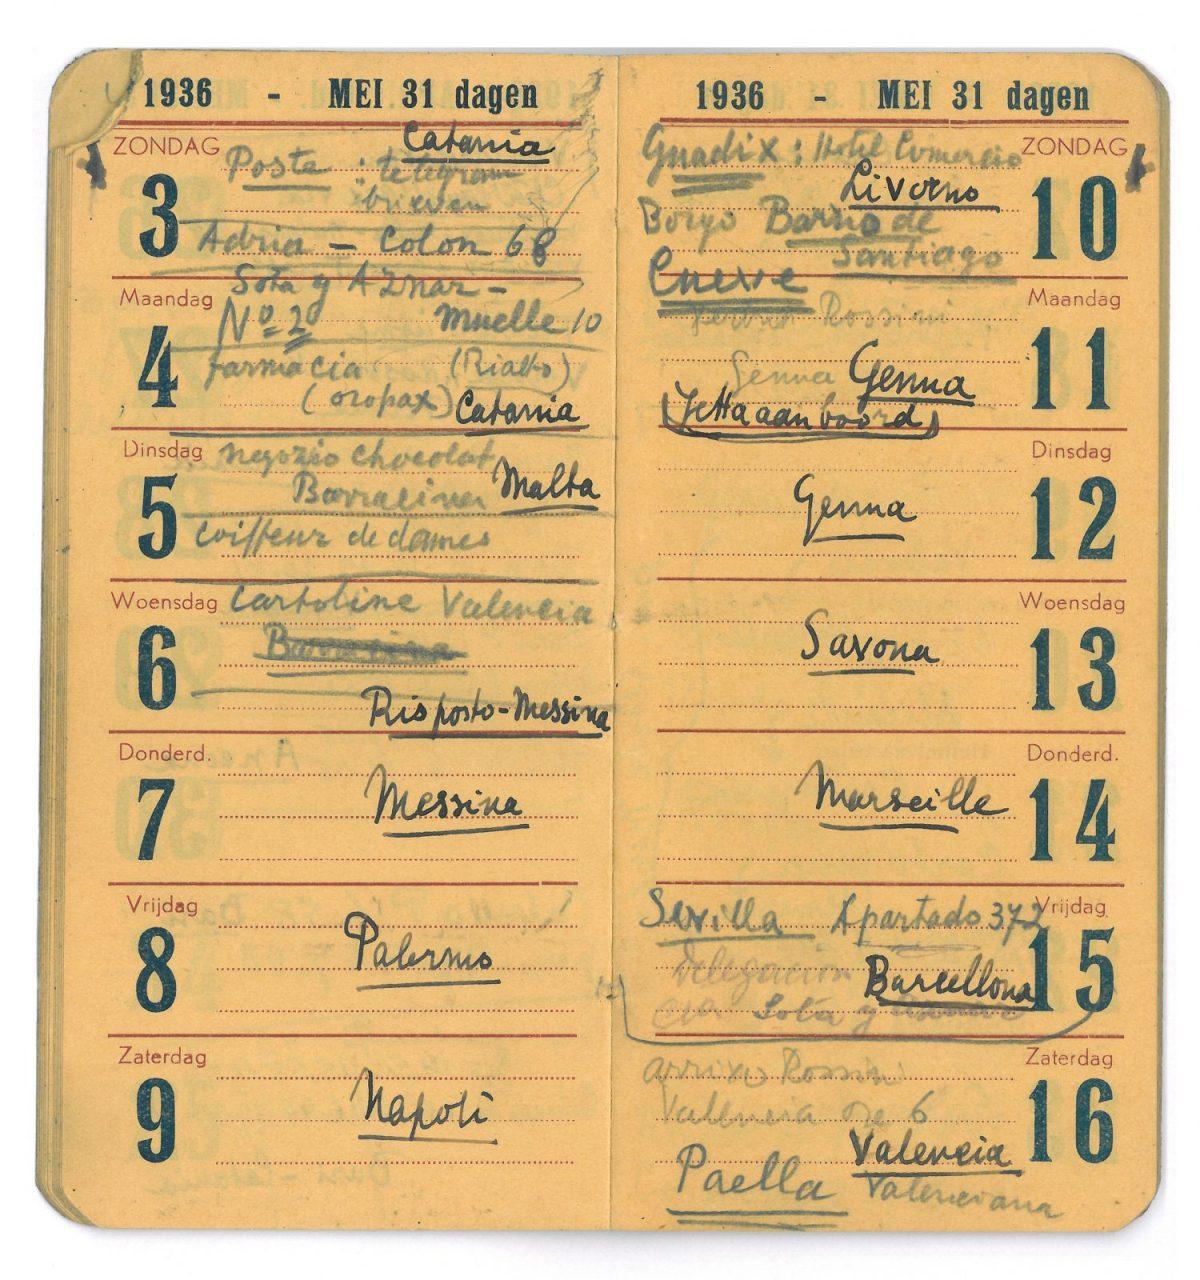 1936 - MEI 31 dagen
ZONDAG
3
Catania
Poste : telegram
: brieven
Adria - Colon 68
Maandag
4
Sota y Aznar -
No 2 Muelle 10
farmacia (Rialto)
(oropax) Catania
Dinsdag
5
negozio chocolat
Malta
coiffeur de dames
Woensdag
6
Cartoline Valencia
Risposto-Messina
Donderd.
7
Messina
Vrijdag
8
Palermo
Zaterdag
9
Napoli
1936 - MEI 31 dagen
ZONDAG
10
Guadix : Hotel Comercio
Livorno
Borgo Barrio de
Santiago
Maandag
11
Rossini
Genua Genua
(Jetta aan boord)
Dinsdag
12
Genua
Woensdag
13
Savona
Donderd.
14
Marseille
Vrijdag
15
Sevilla Apartado 372
Delegacion
Barcellona
Sota y Aznar
Zaterdag
16
arrivo Rossini
Valencia ore 6
Valencia
Paella Valenciana